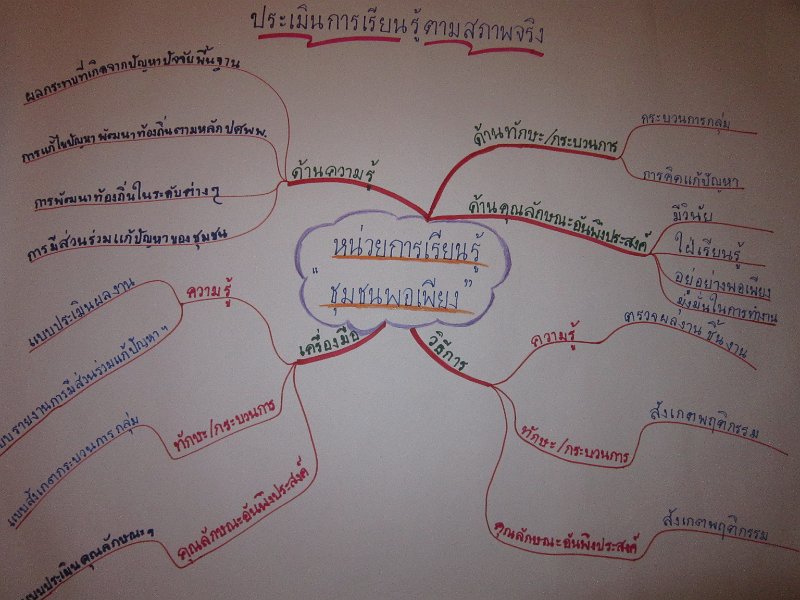 ประเมินการเรียนรู้ตามสภาพจริง
หน่วยการเรียนรู้
"ชุมชนพอเพียง"
ด้านความรู้
ผลกระทบที่เกิดจากปัญหาปัจจัยพื้นฐาน
การแก้ไขปัญหา พัฒนาท้องถิ่นตามหลัก ปศพพ.
การพัฒนาท้องถิ่นในระดับต่างๆ
การมีส่วนร่วมแก้ปัญหาของชุมชน
ด้านทักษะ/กระบวนการ
กระบวนการกลุ่ม
การคิดแก้ปัญหา
ด้านคุณลักษณะอันพึงประสงค์
มีวินัย
ใฝ่เรียนรู้
อยู่อย่างพอเพียง
มุ่งมั่นในการทำงาน
เครื่องมือ
ความรู้
แบบประเมินผลงาน
แบบรายงานการมีส่วนร่วมแก้ปัญหาฯ
ทักษะ/กระบวนการ
แบบสังเกตกระบวนการกลุ่ม
คุณลักษณะอันพึงประสงค์
แบบประเมินคุณลักษณะฯ
วิธีการ
ความรู้
ตรวจผลงาน ชิ้นงาน
ทักษะ/กระบวนการ
สังเกตพฤติกรรม
คุณลักษณะอันพึงประสงค์
สังเกตพฤติกรรม